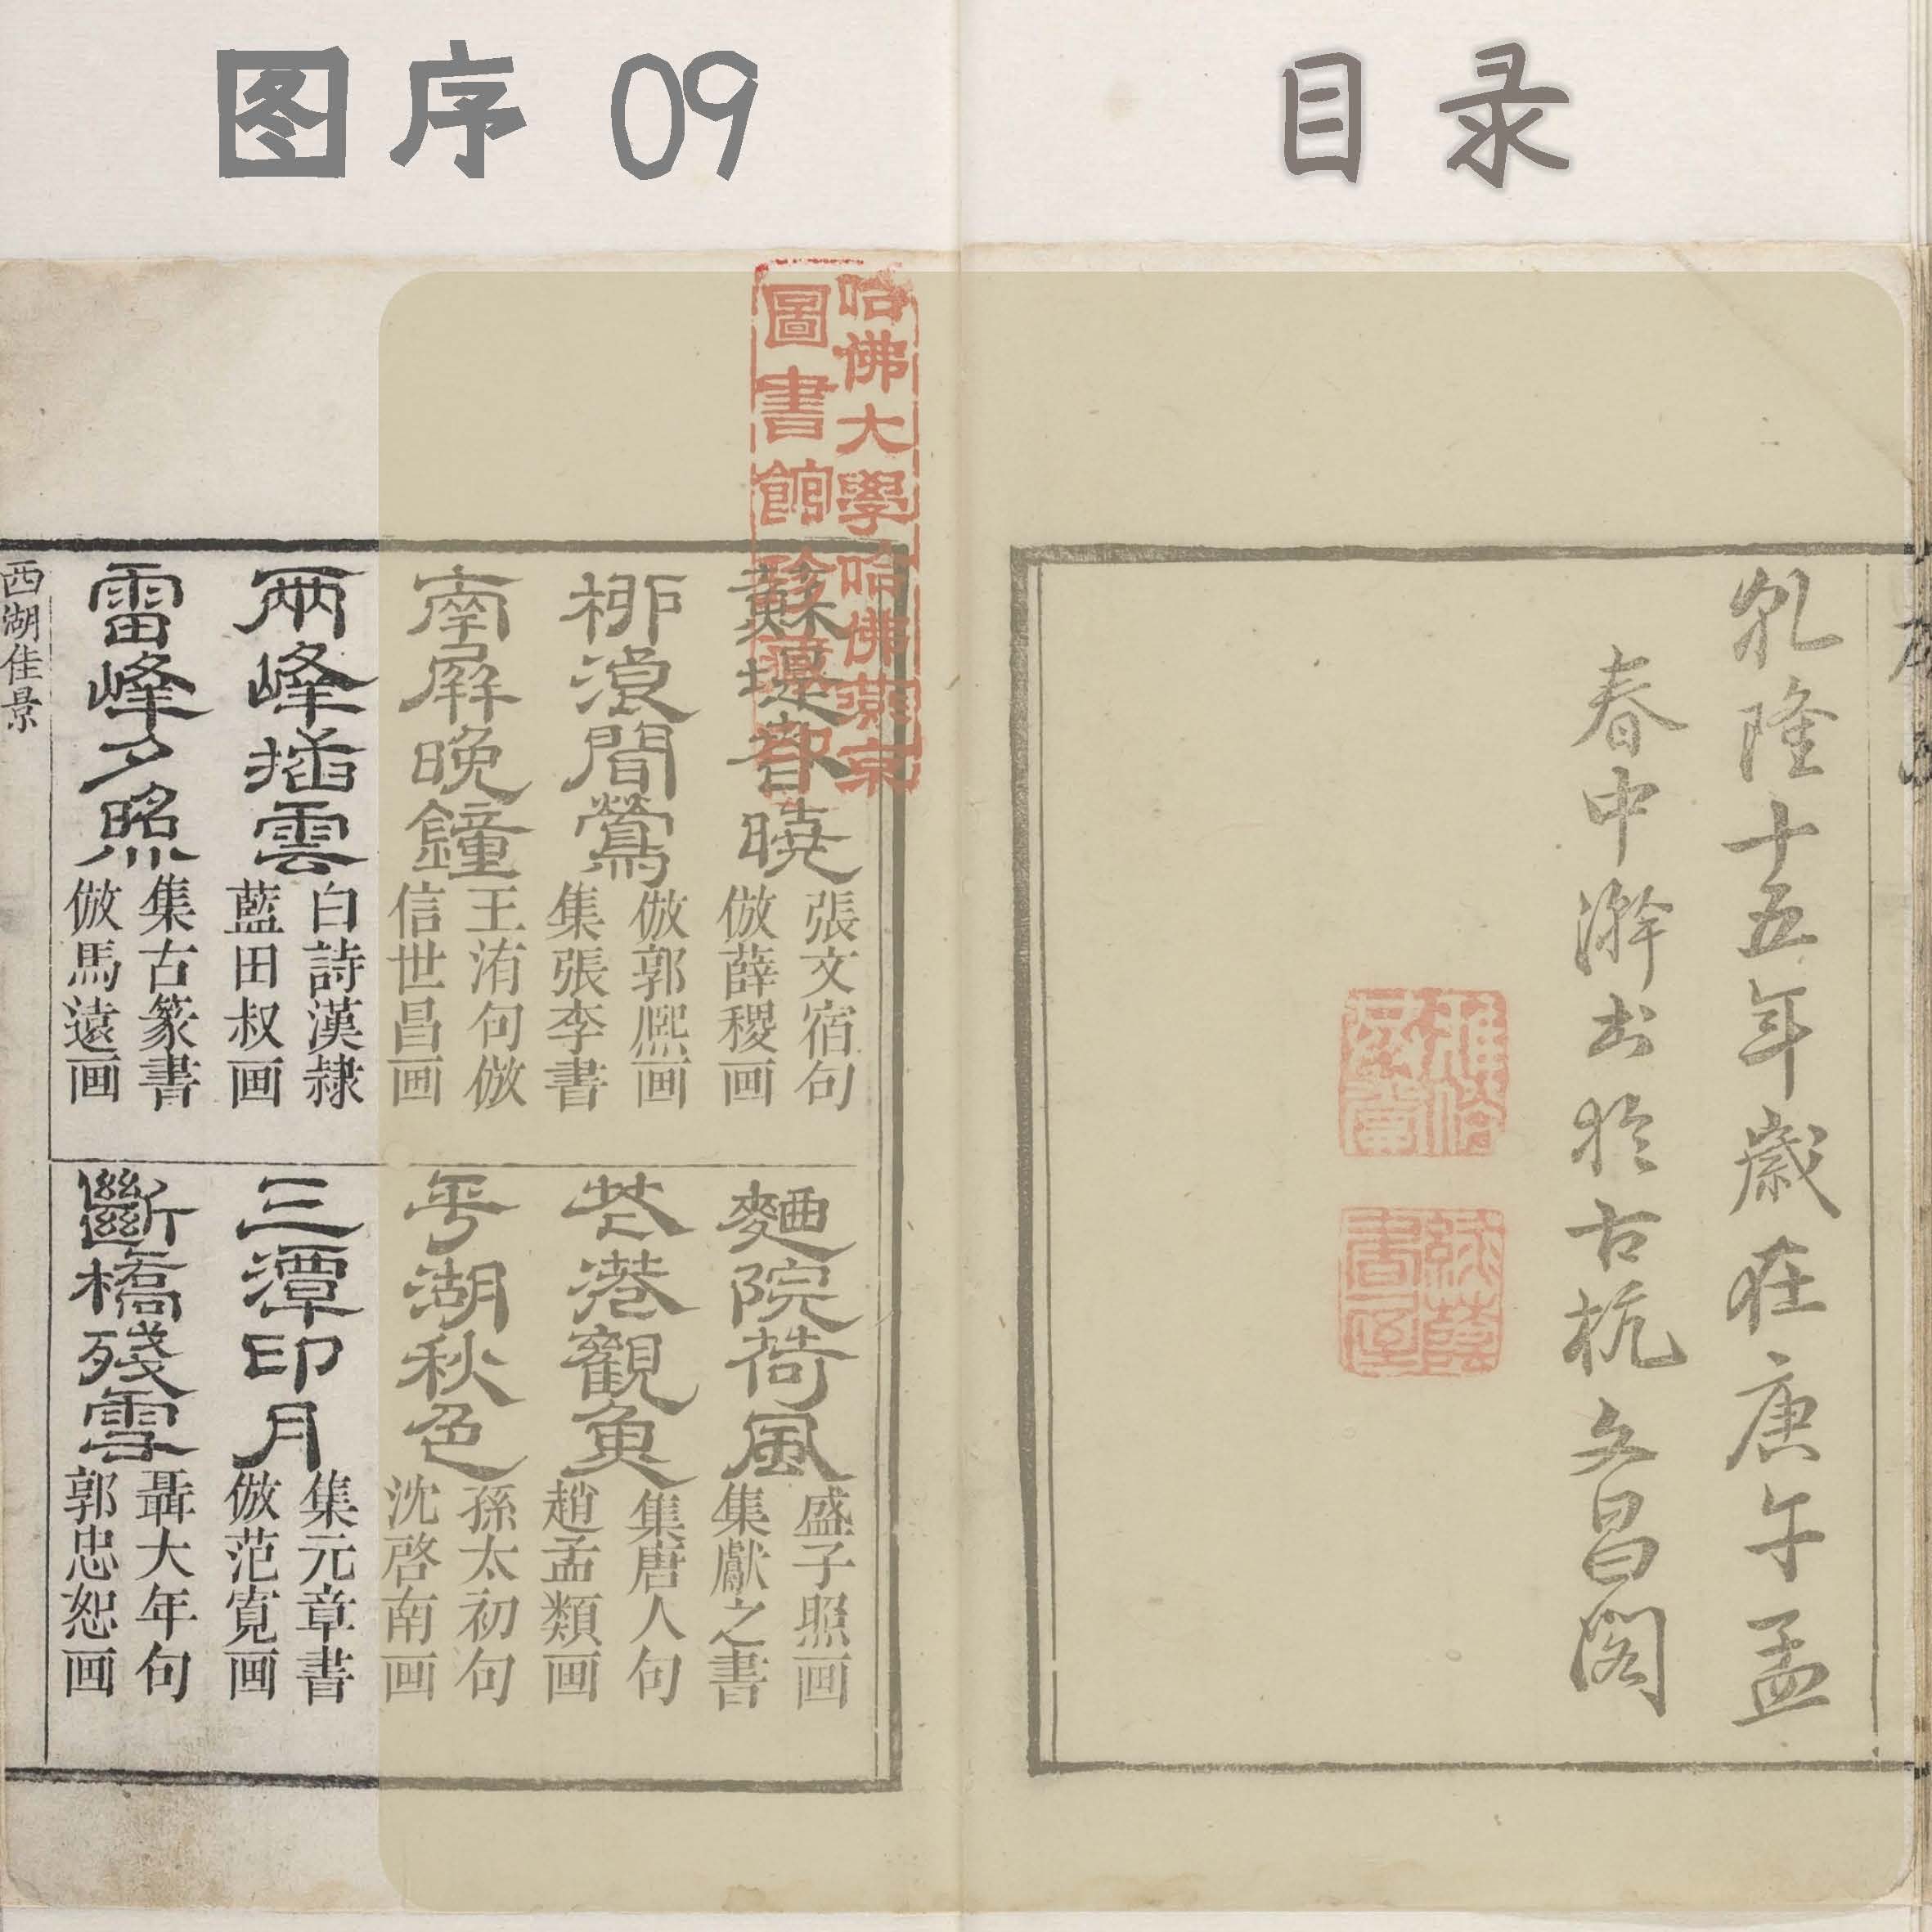 图序 09
目录
乾隆十五年歲在庚午孟
春中澣书於古杭文昌阁
哈佛大學哈佛燕京
圖書館珍藏印
蘇堤春曉
張文宿句
倣薛稷画
柳浪聞鶯
倣郭熈画
集張李書
南屏晚鐘
王洧句倣
信世昌画
兩峰插雲
白詩漢隸
藍田叔画
雷峰夕照
集古篆書
倣馬遠画
麯院荷風
盛子照画
集獻之書
花港觀魚
集唐人句
趙孟類画
平湖秋色
孫太初句
沈啓南画
三潭印月
集元章書
倣范寬画
斷橋殘雪
聶大年句
郭忠恕画
西湖佳景